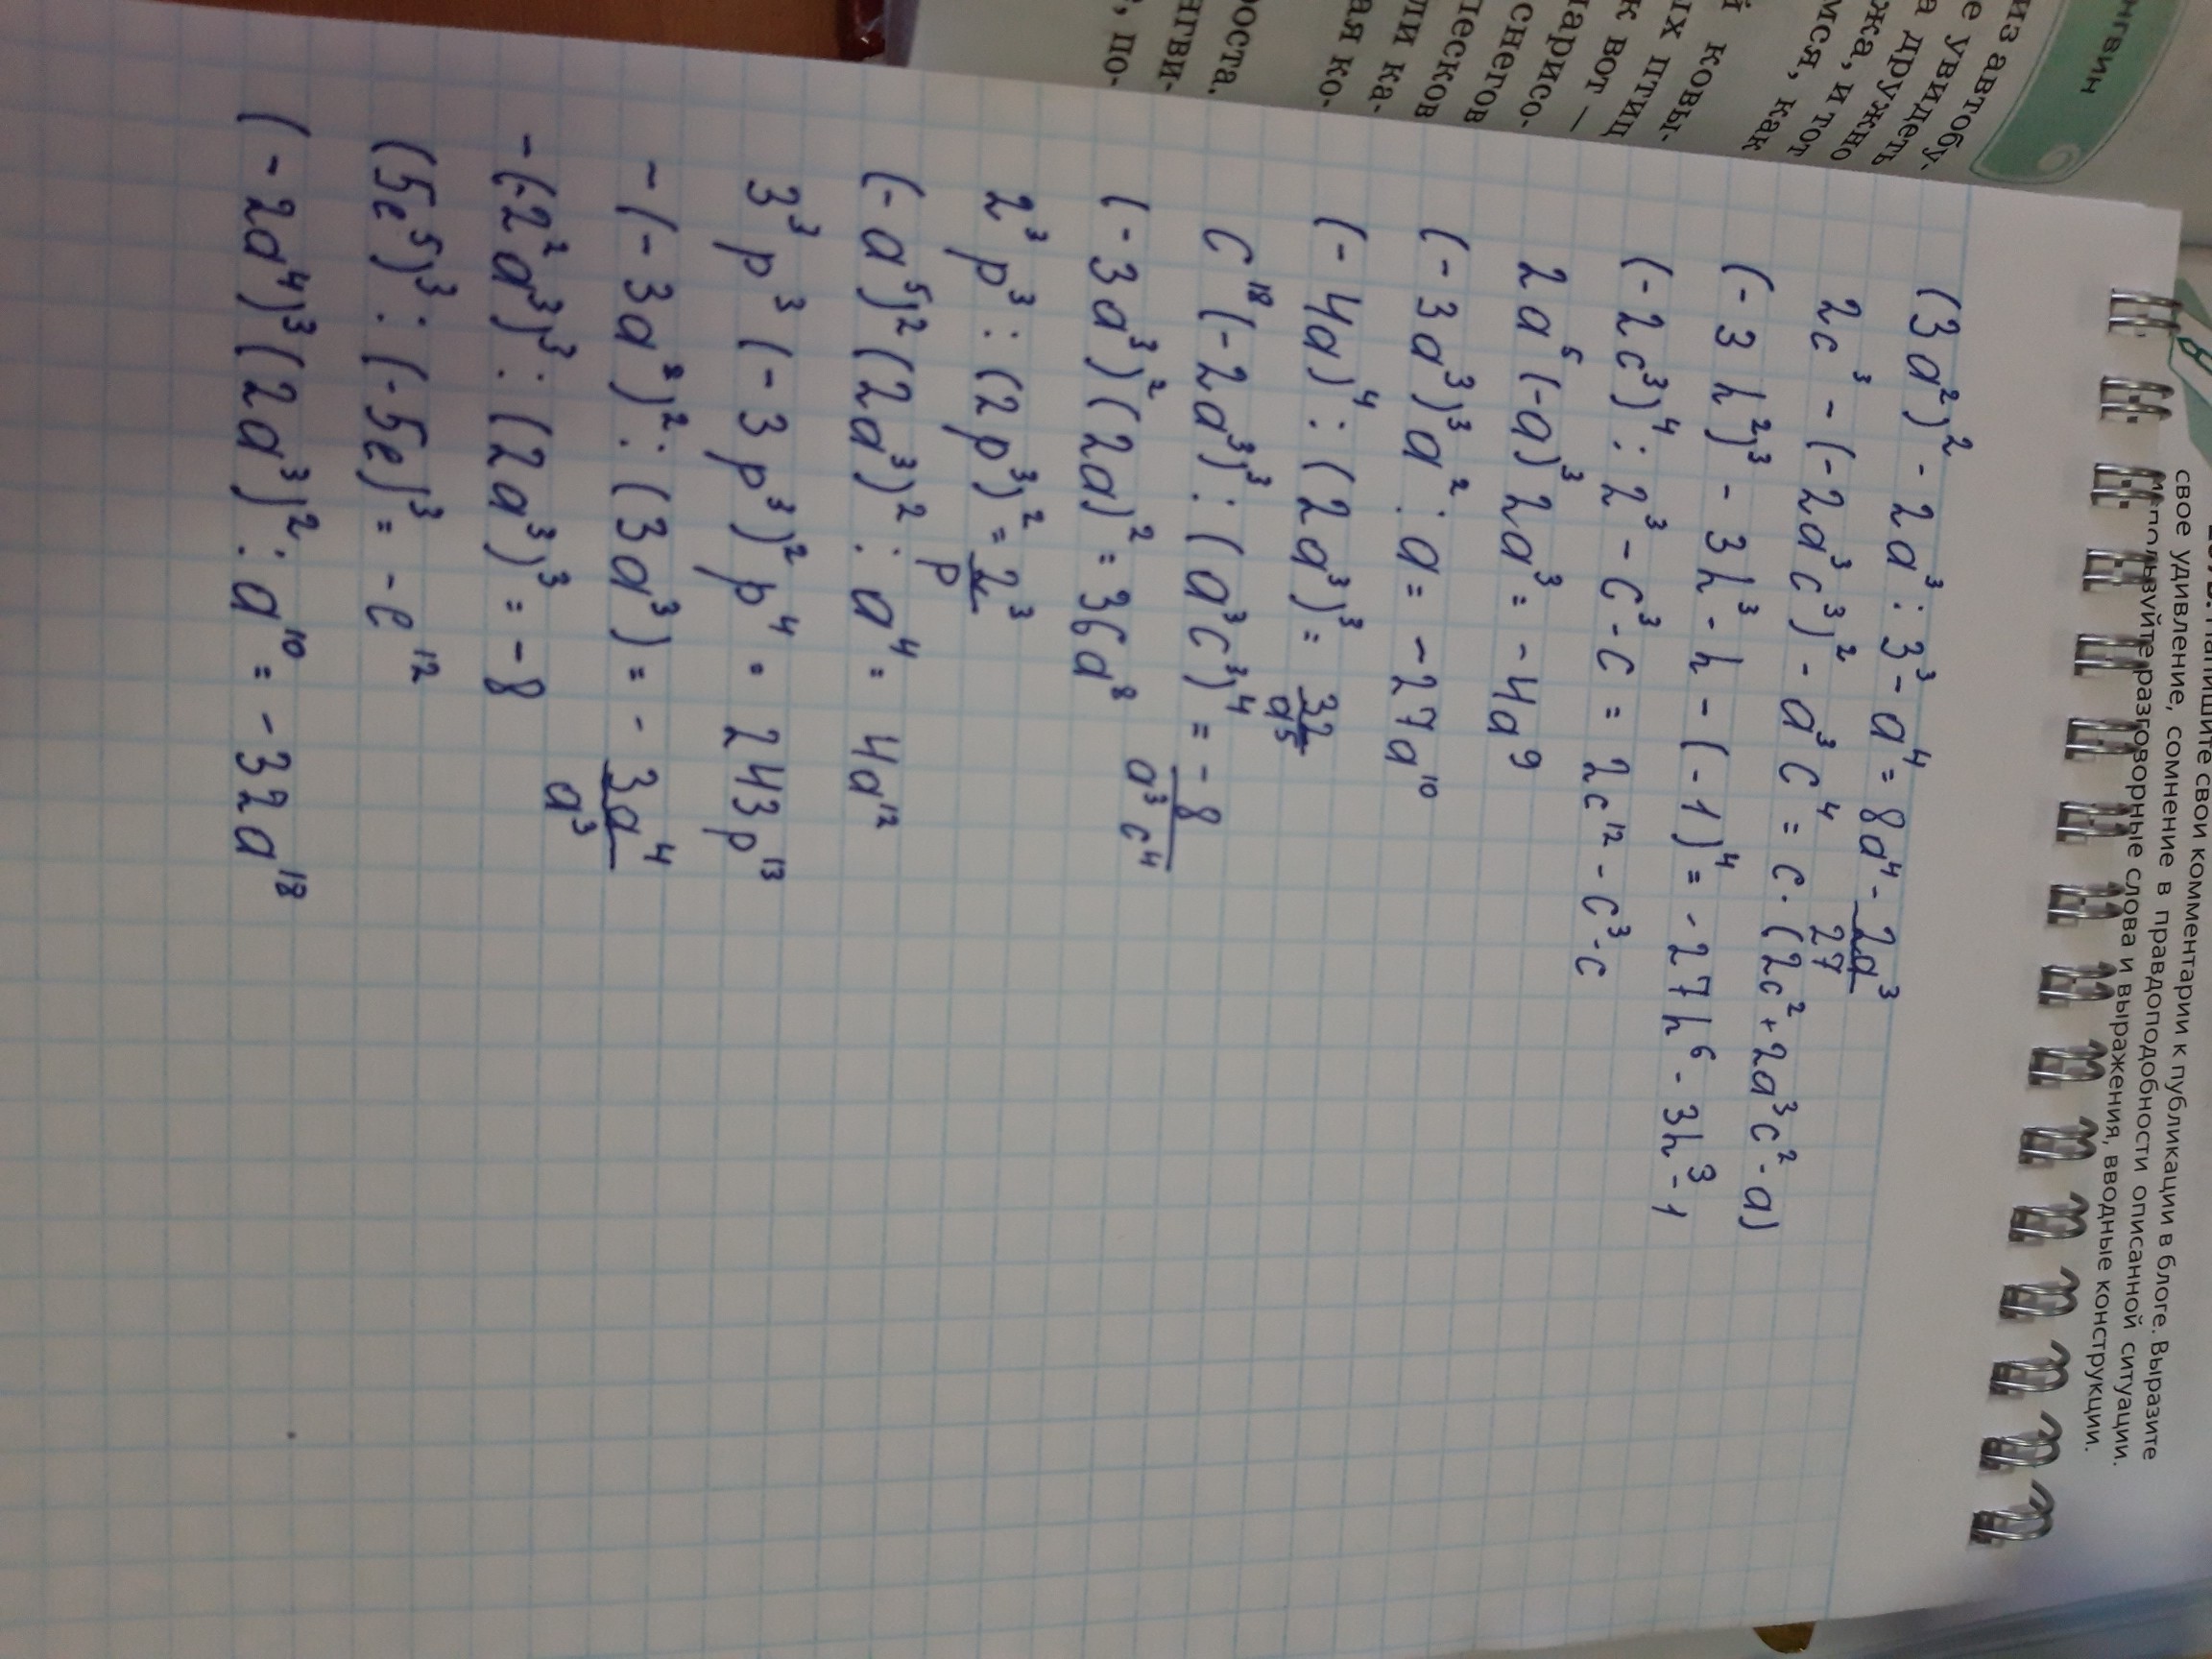 нгвин
из автобу-
е увидеть
а дружно
жа, и тот
мся, как
й ковы-
ых птиц
к вот —
нарисо-
снегов
песков
ли ка-
ая ко-
роста.
нгви-
, по-
свои комментарии к публикации в блоге. Выразите
свое удивление, сомнение в правдоподобности описанной ситуации.
Используйте разговорные слова и выражения, вводные конструкции.
(3a²)² - 2a³ : 3³ - a⁴ = 8a⁴ - 2a³/27
2c³ - (-2a³c³)² - a³c⁴ = c · (2c² + 2a³c² - a)
(-3h²)³ - 3h³ - h - (-1)⁴ = -27h⁶ - 3h³ - 1
(-2c³)⁴ : 2³ - c³ - c = 2c¹² - c³ - c
2a⁵(-a)³2a³ = -4a⁹
(-3a³)³a² : a = -27a¹⁰
(-4a)⁴ : (2a³)³ = 32/a⁵
c¹⁸(-2a³)³ : (a³c³)⁴ = -8/a³c⁴
(-3a³)²(2a)² = 36a⁸
2³p³ : (2p³)² = 2³/p
(-a⁵)²(2a³)² : a⁴ = 4a¹²
3³p³(-3p³)²p⁴ = 243p¹³
-(-3a⁸)² : (3a³) = -3a⁴/a³
-(-2²a³)³ : (2a³)³ = -8
(5e⁵)³ : (-5e)³ = -e¹²
(-2a⁴)³(2a³)² : a¹⁰ = -32a¹⁸